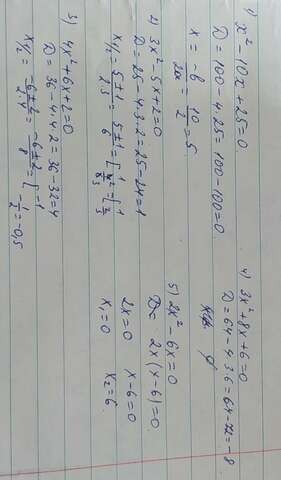 1) x² - 10x + 25 = 0
D = 100 - 4·25 = 100 - 100 = 0
x = -b/2a = 10/2 = 5.
2) 3x² - 5x + 2 = 0
D = 25 - 4·3·2 = 25 - 24 = 1
x₁/₂ = 5±1/2·3 = 5±1/6 = [1 4/6 = [1 2/3
3) 4x² + 6x + 2 = 0
D = 36 - 4·4·2 = 36 - 32 = 4
x₁/₂ = -6±2/2·4 = -6±2/8 = [-1 -1/2 = -0,5
4) 3x² + 8x + 6 = 0
D = 64 - 4·3·6 = 64 - 72 = -8
5) 2x² - 6x = 0
2x(x - 6) = 0
2x = 0 x - 6 = 0
x₁ = 0 x₂ = 6.